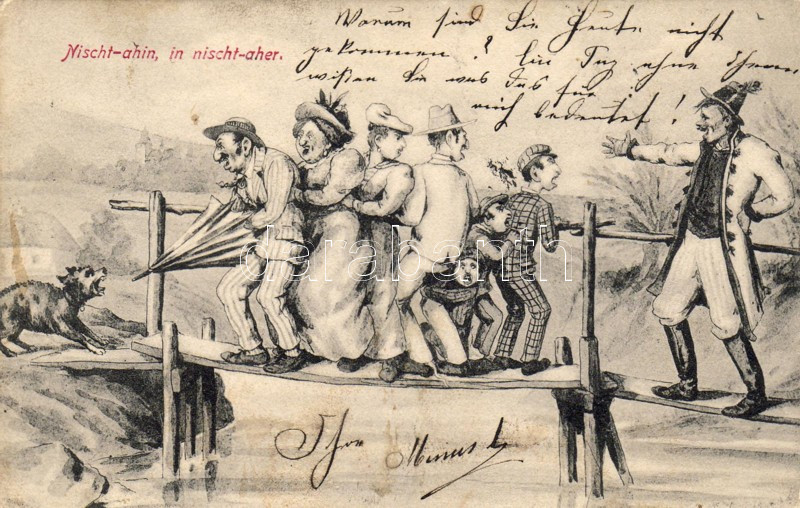 Nischt-ahin, in nischt-aher.
Warum sind Sie Heute nicht
gekommen? Ein Tag ohne Ihnen
wissen Sie was das für
mich bedeutet!
darabanth
Ihr